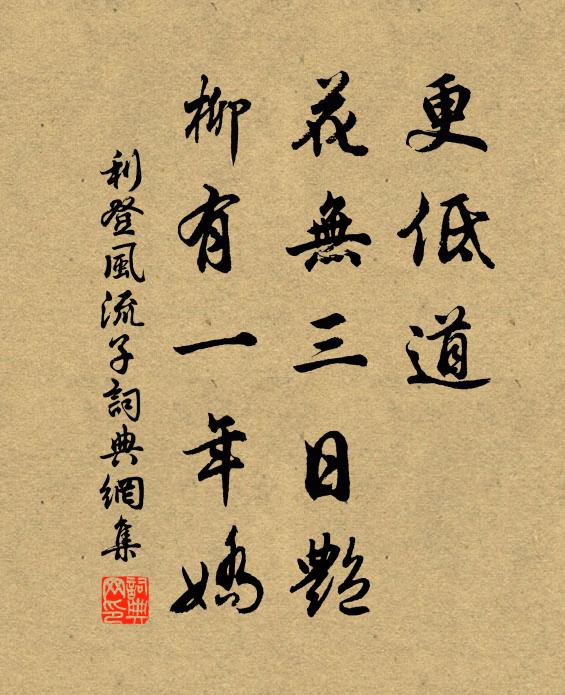 更低道
花無三日艷
柳有一年嬌
利登風流子詞典網集
詞典网印